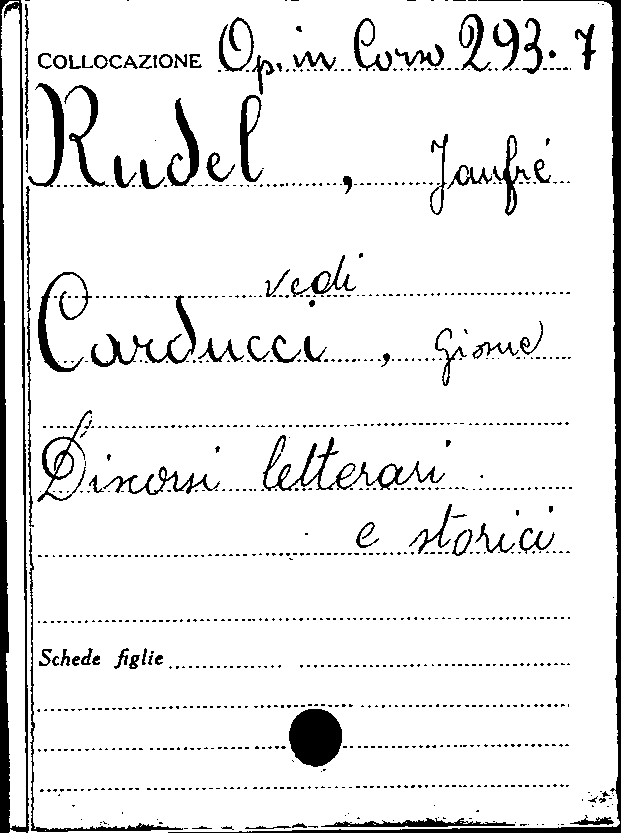 COLLOCAZIONE Op. in Corso 293.7
Rudel, Jaufré
vedi
Carducci, Giosue
Discorsi letterari
e storici
Schede figlie